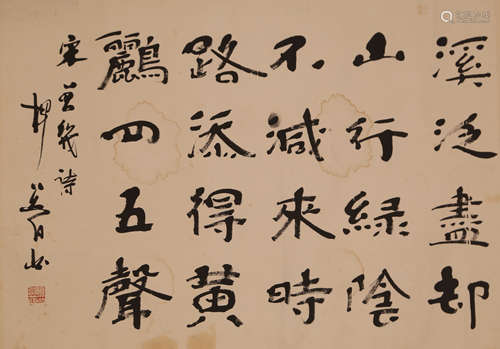 溪泛盡却
山行綠陰
不減來時
路添得黄
鸝四五聲
宋曾幾詩